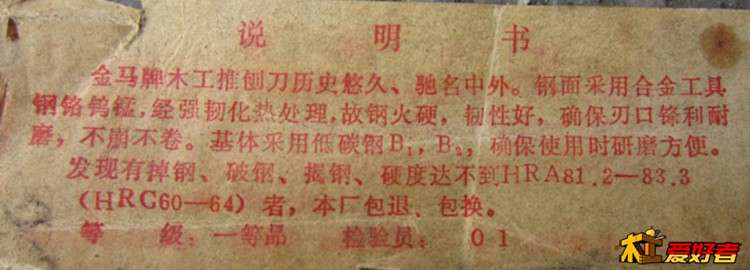 说明书
金马牌木工推刨刀历史悠久、驰名中外。钢面采用合金工具
钢铬钨锰,经强韧化热处理,故钢火硬,韧性好,确保刃口锋利耐
磨,不崩不卷。基体采用低碳钢B1,B2,确保使用时研磨方便。
发现有掉钢、破钢、揭钢、硬度达不到HRA81.2—83.3
(HRC60—64)者,本厂包退、包换。
等 级:一等品 检验员:01
木工爱好者